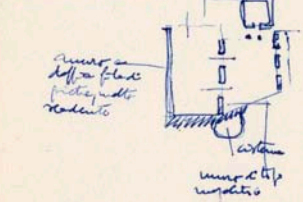 muro a
doppia fila di
pietre, molto
scadente
cisterna
muro di tipo
megalitico